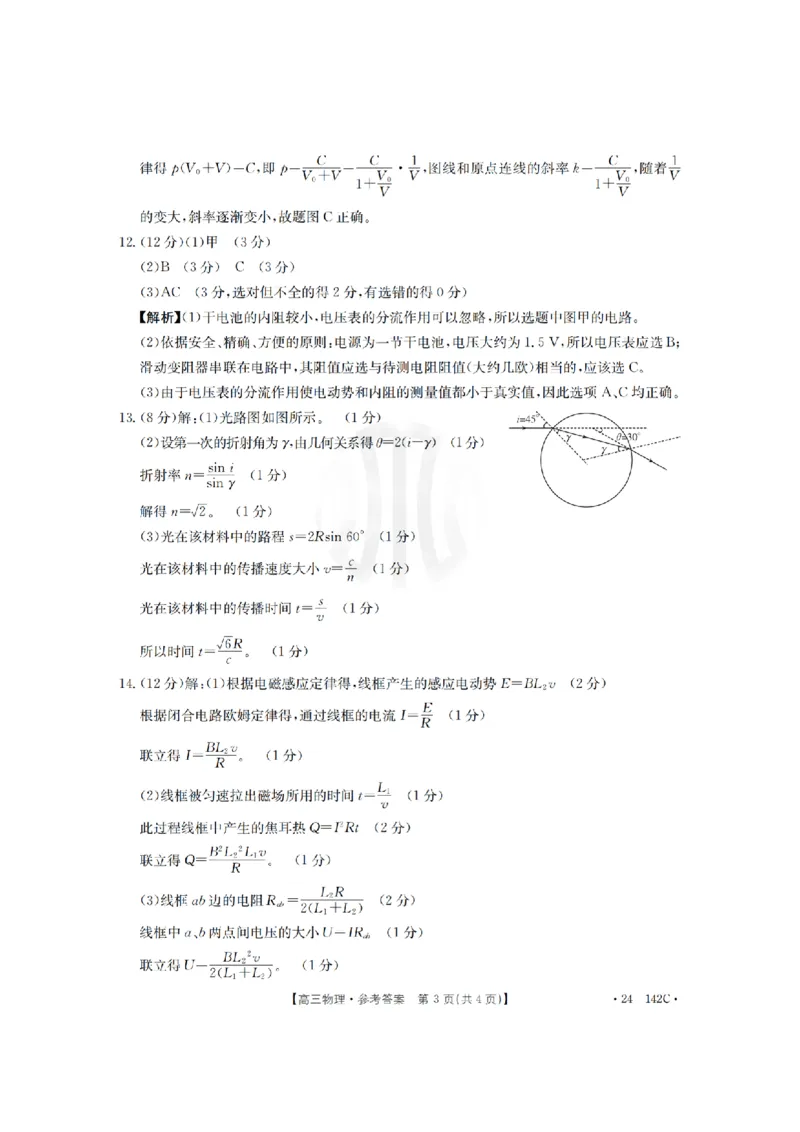 律得 p(V₀+V)=C,即 p=C/(V₀+V)=C/(1+V₀/V)·1/V,图线和原点连线的斜率 k=C/(1+V₀/V),随着1/V
的变大,斜率逐渐变小,故题图C正确。
12.(12分)(1)甲 (3分)
(2)B (3分) C (3分)
(3)AC (3分,选对但不全的得2分,有选错的得0分)
【解析】(1)干电池的内阻较小,电压表的分流作用可以忽略,所以选题中图甲的电路。
(2)依据安全、精确、方便的原则:电源为一节干电池,电压大约为1.5 V,所以电压表应选B;
滑动变阻器串联在电路中,其阻值应选与待测电阻阻值(大约几欧)相当的,应该选C。
(3)由于电压表的分流作用使电动势和内阻的测量值都小于真实值,因此选项A、C均正确。
13.(8分)解:(1)光路图如图所示。 (1分)
i=45°
θ=30°
γ
γ
(2)设第一次的折射角为γ,由几何关系得θ=2(i−γ) (1分)
折射率n=sin i/sin γ (1分)
解得n=√2。 (1分)
(3)光在该材料中的路程s=2Rsin 60° (1分)
光在该材料中的传播速度大小v=c/n (1分)
光在该材料中的传播时间t=s/v (1分)
所以时间t=√6R/c。 (1分)
14.(12分)解:(1)根据电磁感应定律得,线框产生的感应电动势E=BL₂v (2分)
根据闭合电路欧姆定律得,通过线框的电流I=E/R (1分)
联立得I=BL₂v/R。 (1分)
(2)线框被匀速拉出磁场所用的时间t=L₁/v (1分)
此过程线框中产生的焦耳热Q=I²Rt (2分)
联立得Q=B²L₂²L₁v/R。 (1分)
(3)线框ab边的电阻R_ab=L₂R/2(L₁+L₂) (2分)
线框中a、b两点间电压的大小U=IR_ab (1分)
联立得U=BL₂²v/2(L₁+L₂)。 (1分)
【高三物理·参考答案 第3页(共4页)】 ·24—142C·